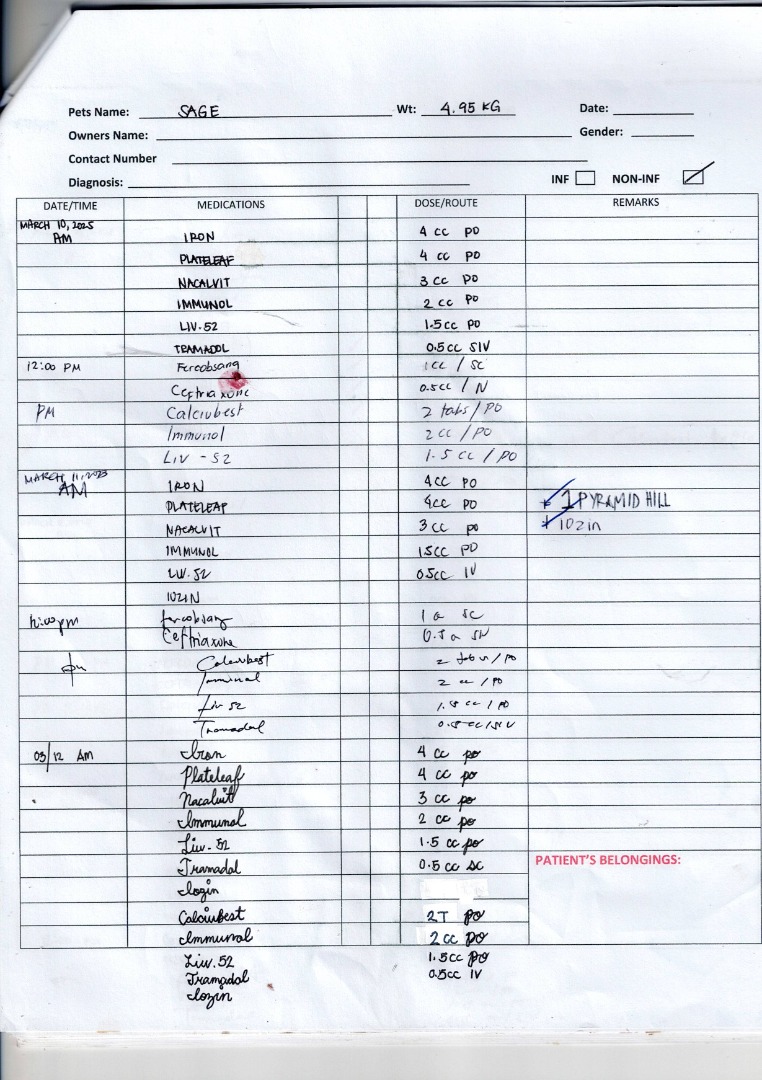 Pets Name: SAGE Wt: 4.95 KG Date:
Owners Name: Gender:
Contact Number
Diagnosis: INF NON-INF
DATE/TIME MEDICATIONS DOSE/ROUTE REMARKS
MARCH 10, 2025
AM IRON 4 cc PO
PLATELEAF 4 cc PO
NACALVIT 3 cc PO
IMMUNOL 2 cc PO
LIV.52 1.5cc PO
TRAMADOL 0.5cc SIV
12:00 PM Fercobsang 1cc / SC
Ceftriaxone 0.5cc / IV
PM Calciubest 2 tabs / PO
Immunol 2 cc / PO
LIV - 52 1.5 cc / PO
MARCH 11, 2025
AM IRON 4cc PO
PLATELEAF 4cc PO 1 PYRAMID HILL
NACALVIT 3 cc PO + 10zin
IMMUNOL 1.5cc PO
LIV.52 0.5cc IV
10ZIN
12:00pm fercobsang 1 cc SC
Ceftriaxone 0.5 cc SIV
pm Calciubest 2 tabs / PO
2 cc / PO
Liv 52 1.5 cc / PO
Tramadol 0.5 cc / SIV
03/12 AM Iron 4 cc po
Plateleaf 4 cc po
Nacalvit 3 cc po
Immunol 2 cc po
Liv. 52 1.5 cc po
Tramadol 0.5 cc sc
PATIENT'S BELONGINGS:
Calciubest 2T po
Immunol 2 cc po
Liv. 52 1.5cc po
Tramadol 0.5cc IV